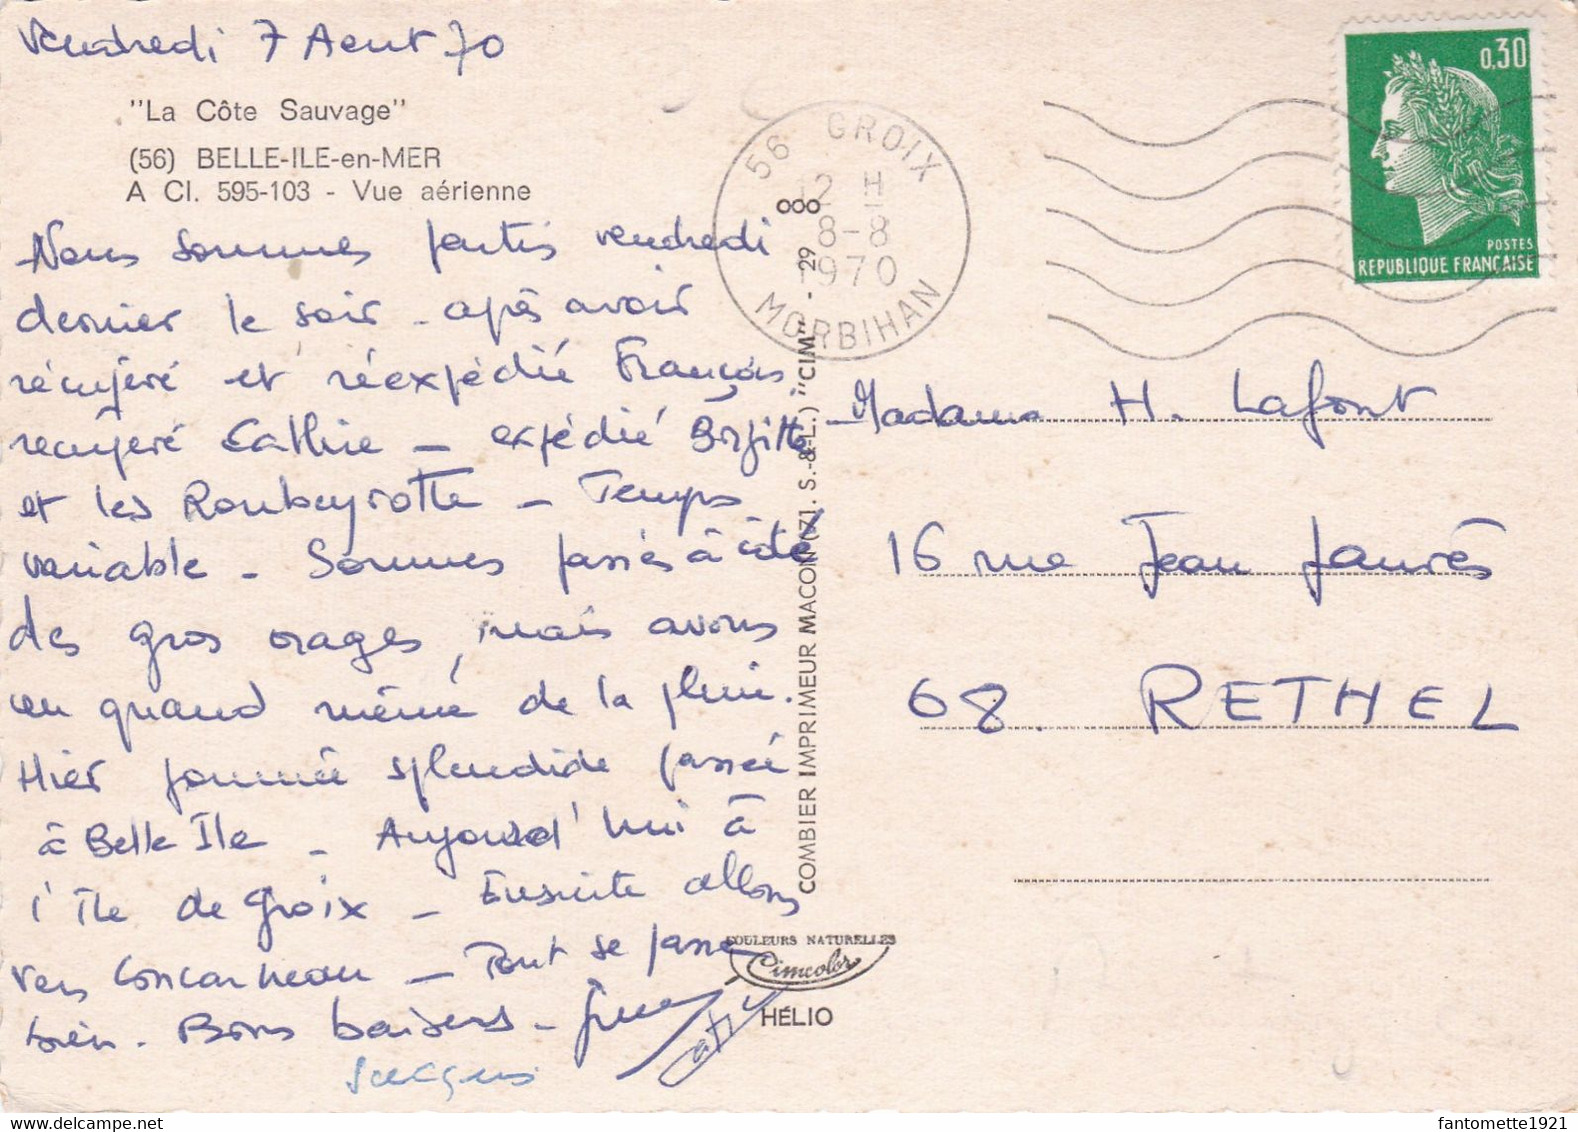 Vendredi 7 Aout 70
"La Côte Sauvage"
(56) BELLE-ILE-en-MER
A Cl. 595-103 - Vue aérienne
Nous sommes partis vendredi
dernier le soir - après avoir
récupéré et réexpédié François
récupéré Cathie - expédié Brigitte
et les Roubeyrotte - Temps
variable - Sommes passés à côté
des gros orages, mais avons
eu quand même de la pluie.
Hier journée splendide passée
à Belle Ile - Aujourd'hui à
l'île de Groix - Ensuite allons
vers Concarneau - Tout se passe
bien. Bons baisers -
Jacques
COMBIER IMPRIMEUR MACON (71. S.-&-L.) "CIM" - 29
COULEURS NATURELLES
Cimcolor
HÉLIO
56 GROIX
12 H
8-8
1970
MORBIHAN
0,30
POSTES
REPUBLIQUE FRANÇAISE
Madame H. Lafont
16 rue Jean Jaurès
68. RETHEL
fantomette1921